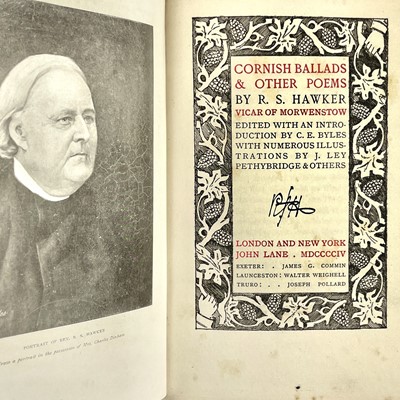 PORTRAIT OF REV. R. S. HAWKER
From a portrait in the possession of Mrs.
CORNISH BALLADS
& OTHER POEMS
BY R. S. HAWKER
VICAR OF MORWENSTOW
EDITED WITH AN INTRO-
DUCTION BY C. E. BYLES
WITH NUMEROUS ILLUS-
TRATIONS BY J. LEY
PETHYBRIDGE & OTHERS
LONDON AND NEW YORK
JOHN LANE . MDCCCCIV
EXETER: . JAMES G. COMMIN
LAUNCESTON: WALTER WEIGHELL
TRURO: . . JOSEPH POLLARD